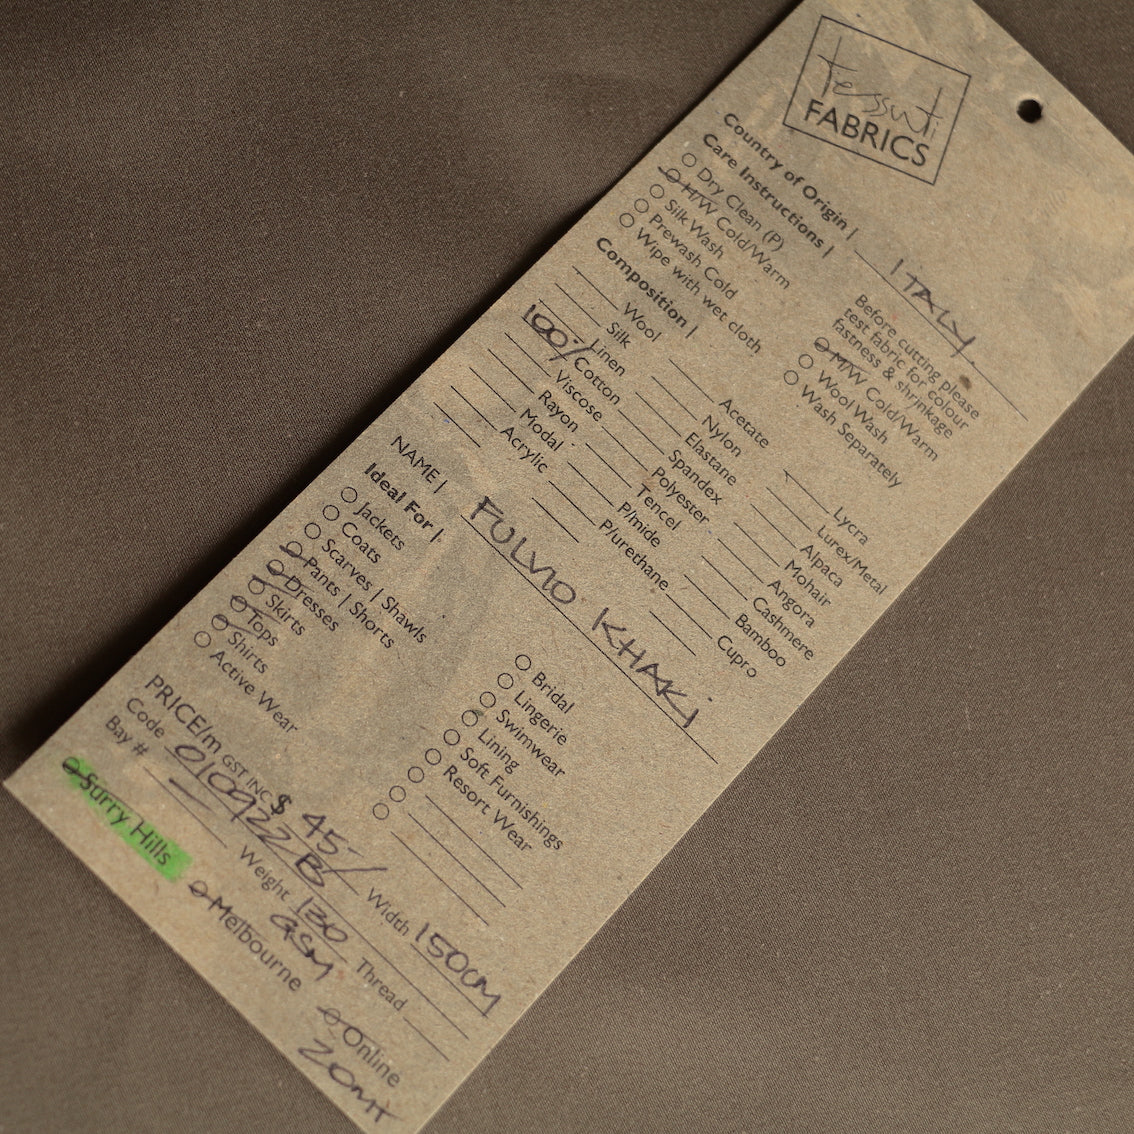 tessuti
FABRICS
Country of Origin | ITALY
Care Instructions |
Dry Clean (P)
H/W Cold/Warm
Silk Wash
Prewash Cold
Wipe with wet cloth
Before cutting please
test fabric for colour
fastness & shrinkage
M/W Cold/Warm
Wool Wash
Wash Separately
Composition |
Wool
Silk
Linen
100% Cotton
Viscose
Rayon
Modal
Acrylic
Acetate
Nylon
Elastane
Spandex
Polyester
Tencel
P/mide
P/urethane
Lycra
Lurex/Metal
Alpaca
Mohair
Angora
Cashmere
Bamboo
Cupro
NAME | FULVIO KHAKI
Ideal For |
Jackets
Coats
Scarves | Shawls
Pants | Shorts
Dresses
Skirts
Tops
Shirts
Active Wear
Bridal
Lingerie
Swimwear
Lining
Soft Furnishings
Resort Wear
PRICE/m GST INC $ 45-/ Width 150CM
Code 010922B Weight 130 GSM Thread
Bay #
Surry Hills Melbourne Online
20mt